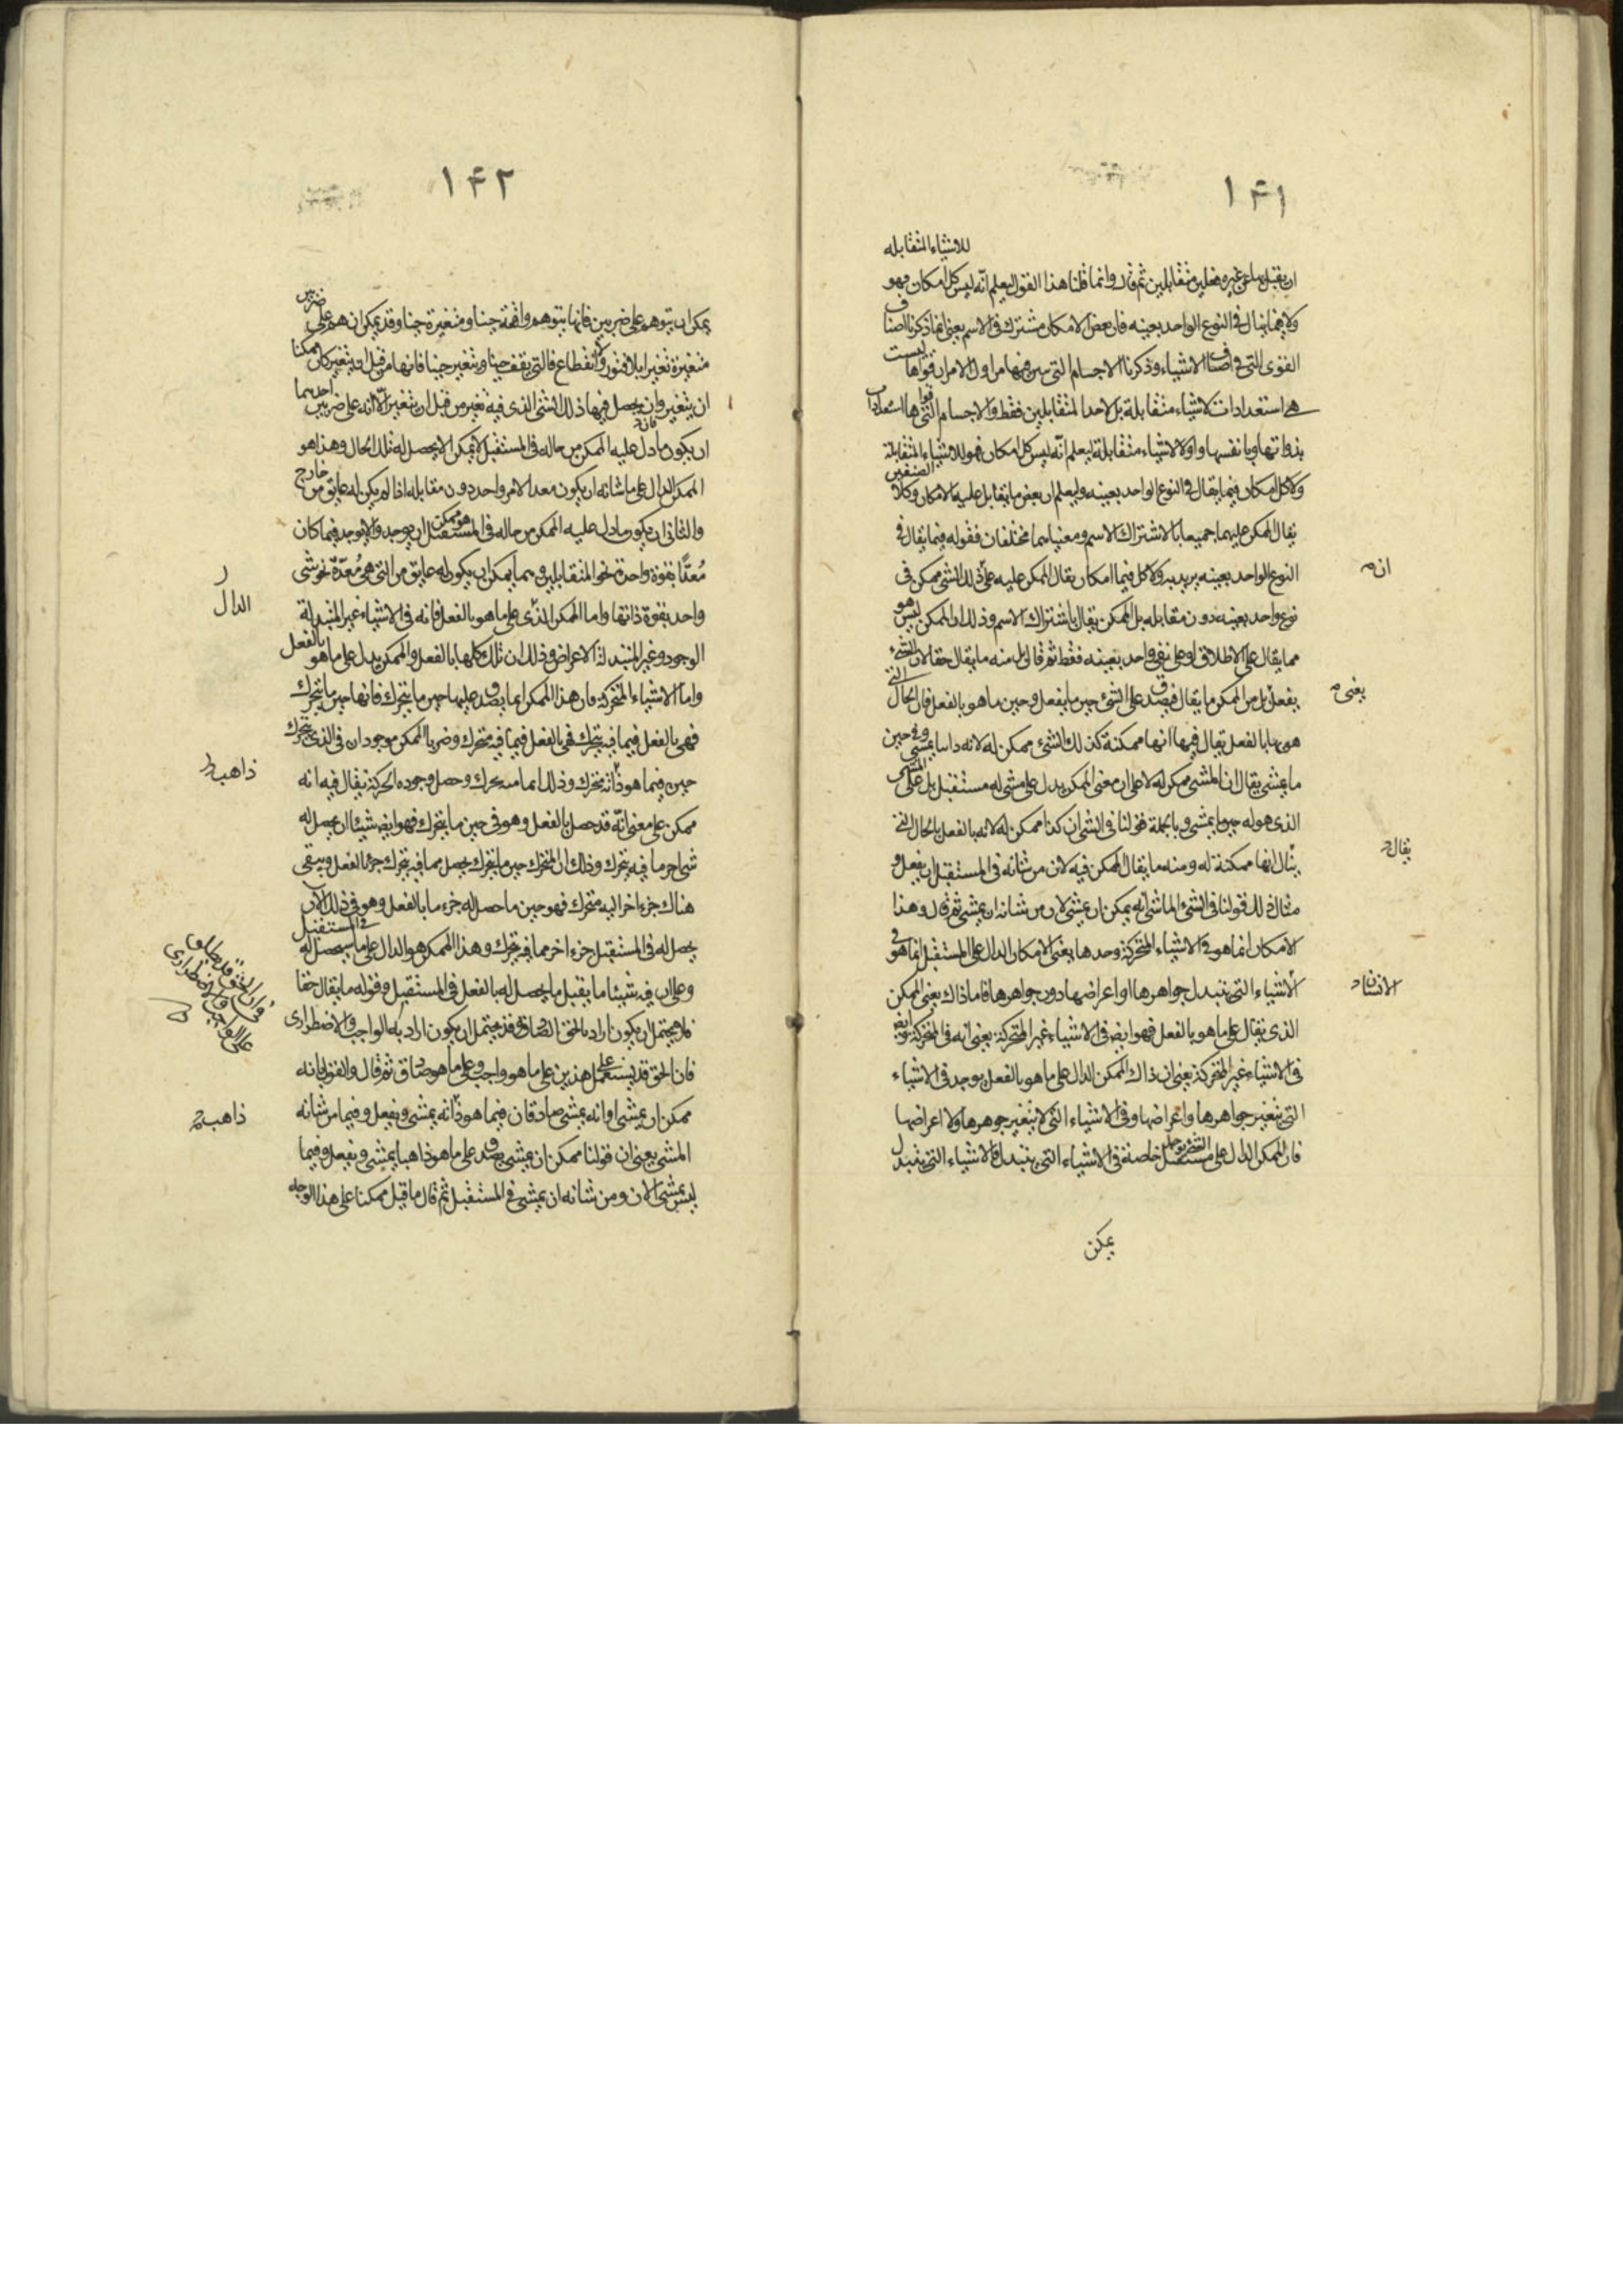 ١٤١
للاشياء المتقابله
ان يقبل من غيره فعلين متقابلين ثم قال وانما قلنا هذا القول ليعلم انه ليس كل امكان فهو
ولا فيما يقال فى النوع الواحد بعينه فان بعض الامكان مشترك فى الاسم يعنى انما ذكرنا اصناف
القوى التى فى اصناف الاشياء وذكرنا الاجسام التى من اول الامران قواها ليست
هى استعدادات لاشياء متقابلة بل لاحد المتقابلين فقط والاجسام التى قواها استعدادات
بذواتها وبانفسها واولا لاشياء متقابلة ليعلم انه ليس كل امكان فهو للاشياء المتقابلة
ولا كل امكان فيما يقال فى النوع الواحد بعينه وليعلم ان بعض ما يقابل عليه الامكان وكلا الصنفين
يقال الممكن عليهما جميعا بالاشتراك الاسم ومعنياهما مختلفان فقوله فيما يقال فى
النوع الواحد بعينه يريد به ولا كل فيما امكان يقال الممكن عليه على ذلك الشئ ممكن فى
انه
نوع واحد بعينه دون مقابله بل الممكن يقال باشتراك الاسم وذلك ان الممكن ليس هو
مما يقال على الاطلاق اوعلى نفى واحد بعينه فقط ثم قال بل منه ما يقال حقا لان الشئ
يفعل بل من الممكن ما يقال فيصدق على الشئ حين ما يفعل وحين ما هو بالفعل فان الحال التى
يعنى
هو بها بالفعل يقال فيها انها ممكنة كذلك الشئ ممكن له لانه يمشى وفى حين
ما يمشى يقال ان المشى ممكن له لا على ان معنى الممكن يدل على مشى له مستقبل بل على المشى
الذى هو له حين ما يمشى وبالجملة قولنا فى الشئ ان كذا ممكن له لانه بالفعل بالحال التى
يقال
يقال انها ممكنة له ومنه ما يقال الممكن فيه لان من شانه فى المستقبل ان يفعل و
مثال ذلك قولنا فى الشئ الماشى انه يمكن ان يمشى لان من شانه ان يمشى ثم قال وهذا
الامكان انما هو فى الاشياء المتحركة وحدها يعنى الامكان الدال على المستقبل انما هو فى
الاشياء التى يتبدل جواهرها او اعراضها دون جواهرها فاما ذاك يعنى الممكن
الذى يقال على ما هو بالفعل فهو ايضا فى الاشياء غير المتحركة يعنى انه فى المتحركة
فى الاشياء غير المتحركة يعنى ان ذاك الممكن الدال على ما هو بالفعل يوجد فى الاشياء
التى يتغير جواهرها واعراضها وفى الاشياء التى لا يتغير جوهرها ولا اعراضها
فان الممكن الدال على مستقبل خاصته فى الاشياء التى يتبدل فالاشياء التى يتبدل
يمكن
١٤٢
يمكن ان يتوهم على ضربين فانها يتوهم واقفة حينا ومتغيرة حينا وقد يمكن ان هم على ضربين
متغيرة تغيرا بلا فتور ولا انقطاع فالتى يقف حينا ويتغير حينا فانها من قبل ان يتغير كان ممكنا
ان يتغير وان يحصل فيها ذلك الشئ الذى فيه تغير من قبل ان يتغير الا انه على ضربين احدهما
ان يكون ما دل عليه الممكن من حاله فى المستقبل لا يمكن الا يحصل له تلك الحال وهذا هو
الممكن الدال على ما شانه ان يكون معدا لامر واحد دون مقابله اذا لم يكن له عايق من خارج
والثانى ان يكون ما دل عليه الممكن من حاله فى المستقبل هو ممكن ان يوجد والا يوجد فيما كان
مُعدًّا بقوة واحدة نحو المتقابلين وهما يمكن ان يكون له عايق من التى هى مُعدّة نحو شئ
واحد بقوة ذاتها واما الممكن الذى على ما هو بالفعل فانه فى الاشياء غير المتبدلة
الدال
الوجود وغير المتبدلة الاعراض وذلك ان تلك كلها بالفعل والممكن يدل على ما هو بالفعل
واما الاشياء المتحركة فان هذا الممكن انما يصدق عليها حين ما يتحرك فانها حين ما يتحرك
فهى بالفعل فيما فيه يتحرك ففى بالفعل فيما فيه يتحرك وضربا الممكن موجودان فى الذى يتحرك
حين فيما هو ذا انه يتحرك وذلك وحصل وجوده الحركة يقال فيه انه
ذاهب
ممكن على معنى انه قد حصل بالفعل وهو فى حين ما يتحرك فهو ايضا شيئا ان يحصل له
ما فيه يتحرك وذلك ان المتحرك حين ما يتحرك يحصل مما فيه يتحرك جزء بالفعل ويبقى
هناك جزء اخر اليه متحرك فهو حين ما حصل له جزء ما بالفعل وهو فى ذلك الآن
يحصل له فى المستقبل جزء اخر مما فيه يتحرك وهذا الممكن هو الدال على ما سيحصل له فى المستقبل
وعلى ان فيه شيئا ما يقبل ما يحصل له بالفعل فى المستقبل وقوله ما يقال حقا
قد يحتمل ان يكون اراد بالحق الصادق وقد يحتمل ان يكون اراد به الواجب والاضطرارى
فان الحق قد يستعمل على هذين على ما هو واجب وعلى ما هو صادق ثم قال والقول بانه
ممكن ان يمشى او انه يمشى صادقان فيما هو ذا انه يمشى ويفعل وفيما من شانه
ذاهب
المشى يعنى ان قولنا ممكن ان يمشى يصدق على ما هو ذاهبا يمشى ويفعل وفيما
ليس يمشى الان ومن شانه ان يمشى فى المستقبل ثم قال ما قيل ممكنا على هذا الوجه